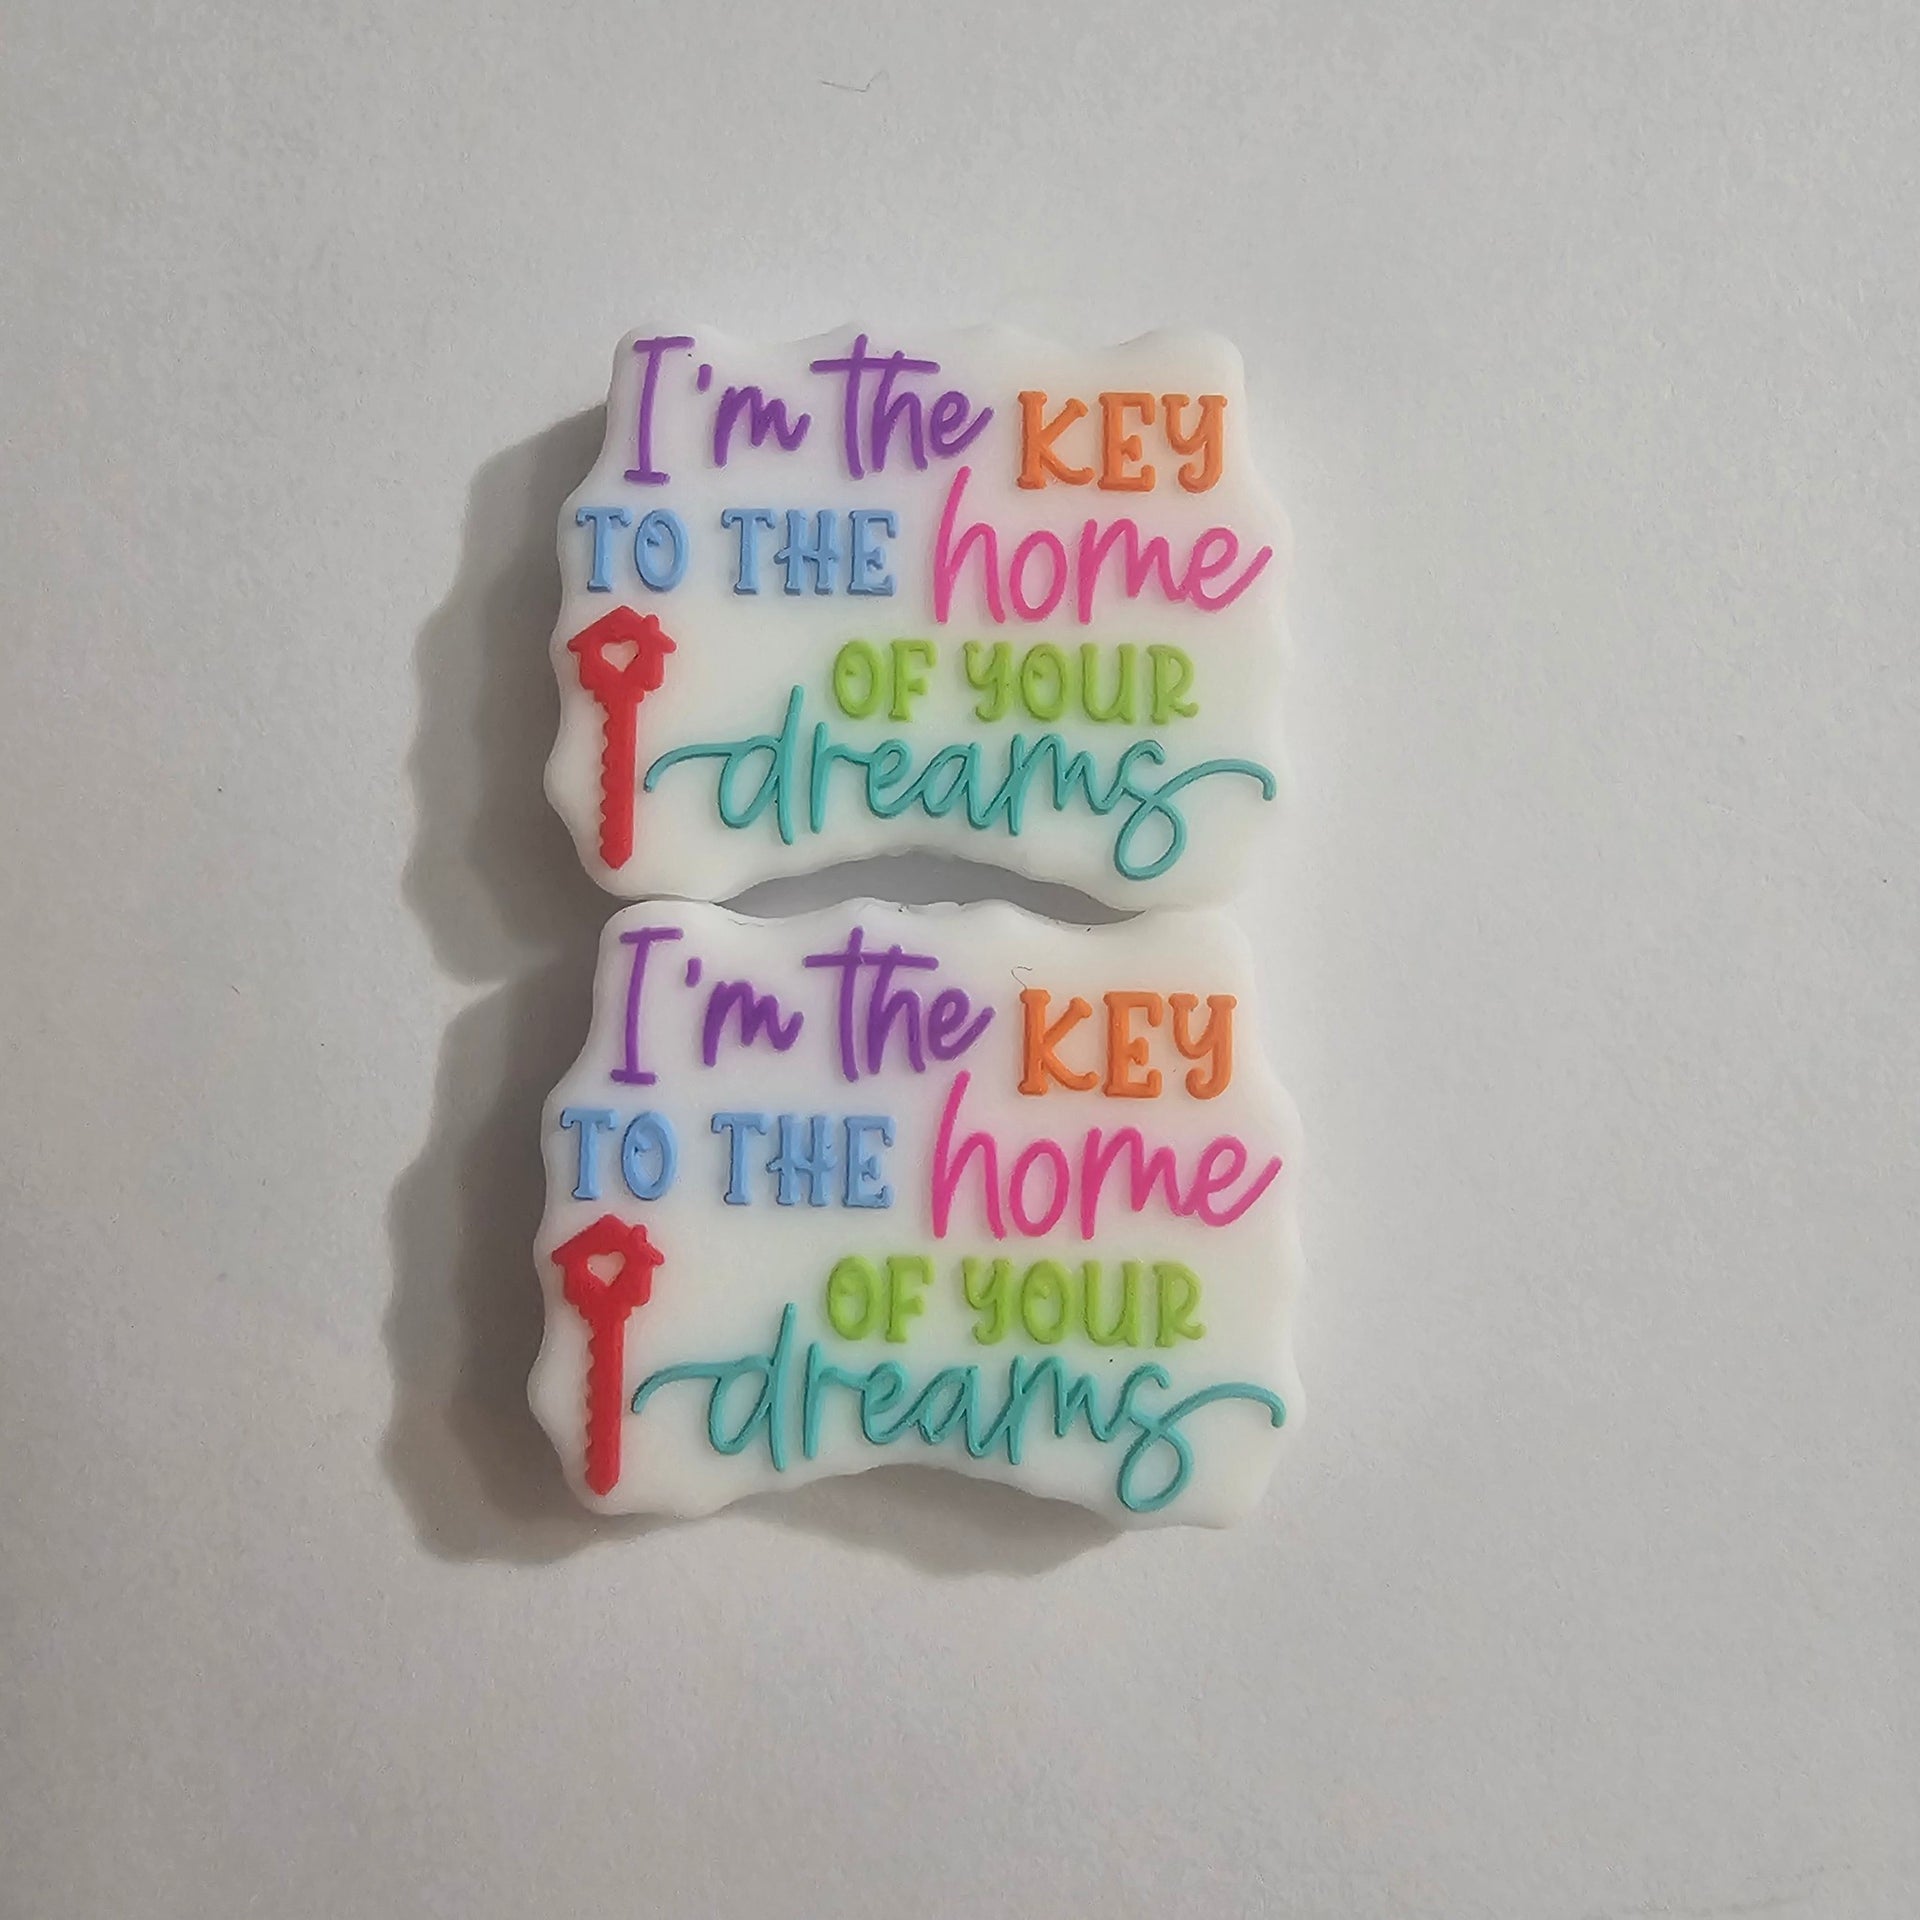 I'm the KEY
TO THE home
OF YOUR
dreams
I'm the KEY
TO THE home
OF YOUR
dreams